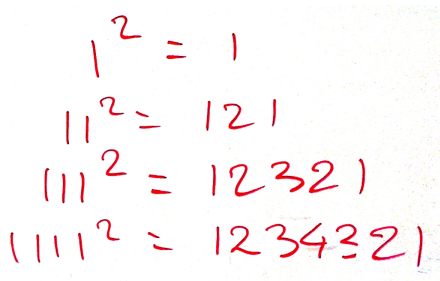 1² = 1
11² = 121
111² = 12321
1111² = 1234321